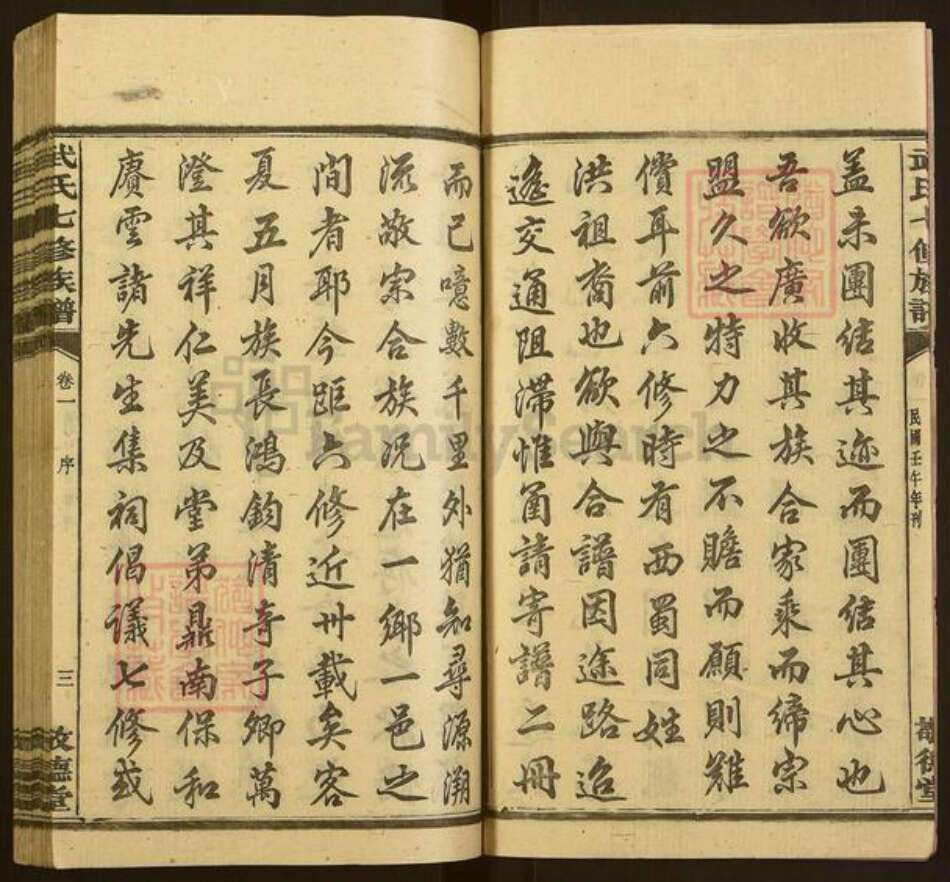 民國壬午年刊
盖未團结其迹而團结其心也
吾欲廣收其族合家乘而缔宗
盟久之特力之不贍而願則難
償耳前六修時有西蜀同姓
洪祖裔也欲與合譜因途路迢
遙交通阻滞惟函請寄譜二冊
而已噫數千里外猶知尋源溯
流敬宗合族况在一鄉一邑之
間者耶今距六修近卅載矣客
夏五月族長鴻鈞清奇子卿萬
澄其祥仁美及堂弟鼎南保和
賡雲諸先生集祠倡議七修或
武氏七修族譜
卷一
序
三
FamilySearch